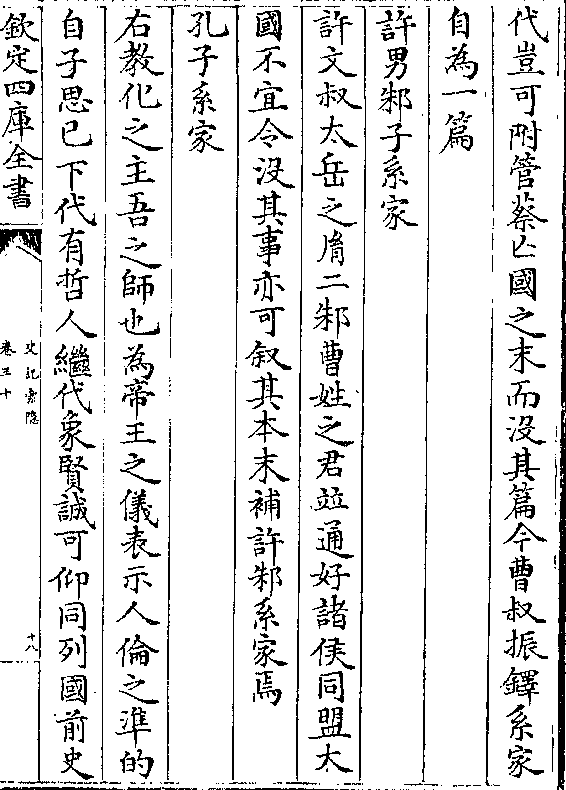 代豈可附管蔡亡國之末而沒其篇今曹叔振鐸系家
自為一篇
許男邾子系家
許文叔太岳之胤二邾曹姓之君並通好諸侯同盟大
國不宜令沒其事亦可叙其本末補許邾系家焉
孔子系家
右教化之主吾之師也為帝王之儀表示人倫之準的
自子思已下代有哲人繼代象賢誠可仰同列國前史
欽定四庫全書
史記索隱
卷三十
十八